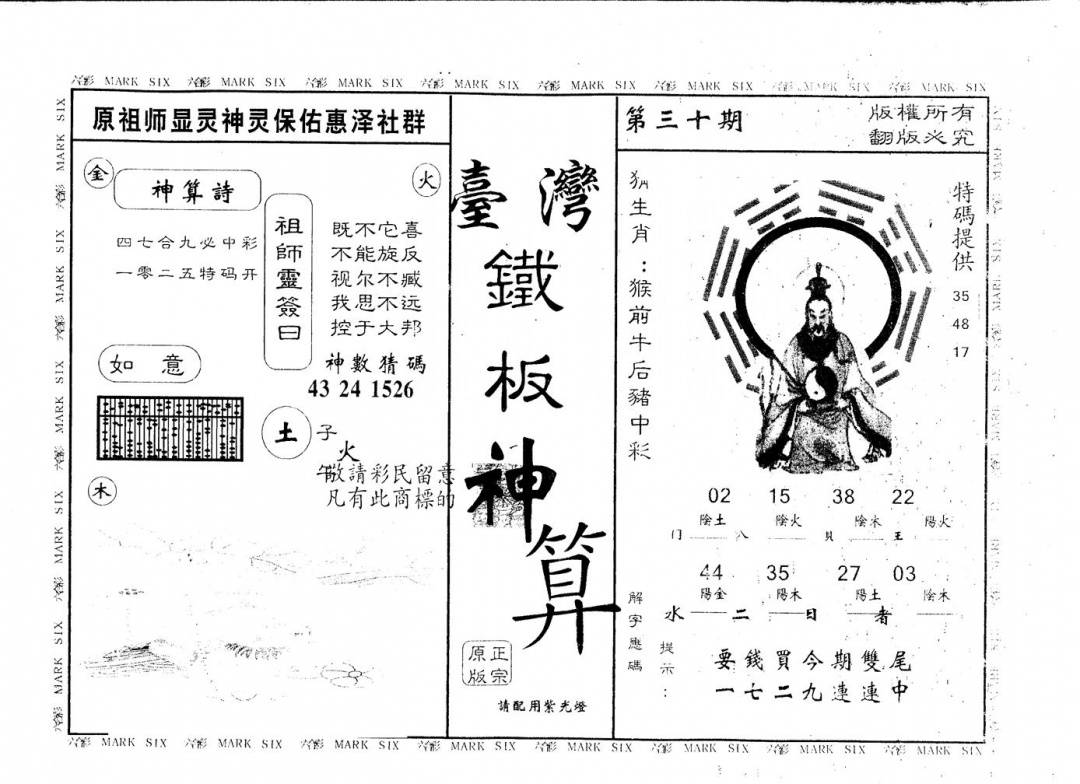 六合彩 MARK SIX 六合彩 MARK SIX 六合彩 MARK SIX 六合彩 MARK SIX 六合彩 MARK SIX 六合彩 MARK SIX 六合彩 MARK SIX 六合彩 MARK SIX
原祖师显灵神灵保佑惠泽社群
金
神算詩
火
四七合九必中彩
一零二五特码开
祖師靈簽曰
既不它喜
不能旋反
视尔不臧
我思不远
控于大邦
神數猜碼
43 24 1526
如意
土
子
火
午
敬請彩民留意
凡有此商標的
木
臺灣
鐵
板
神
算
正宗
原版
請配用紫光燈
第三十期
版權所有
翻版必究
猜生肖：猴前牛后豬中彩
特碼提供
35
48
17
02 15 38 22
陰土 陰火 陰木 陽火
门 八 貝 王
44 35 27 03
陽金 陽木 陽土 陰木
水 二 日 者
解字應碼
提示：
要錢買今期雙尾
一七二九連連中
六合彩 MARK SIX 六合彩 MARK SIX 六合彩 MARK SIX 六合彩 MARK SIX 六合彩 MARK SIX 六合彩 MARK SIX 六合彩 MARK SIX 六合彩 MARK SIX